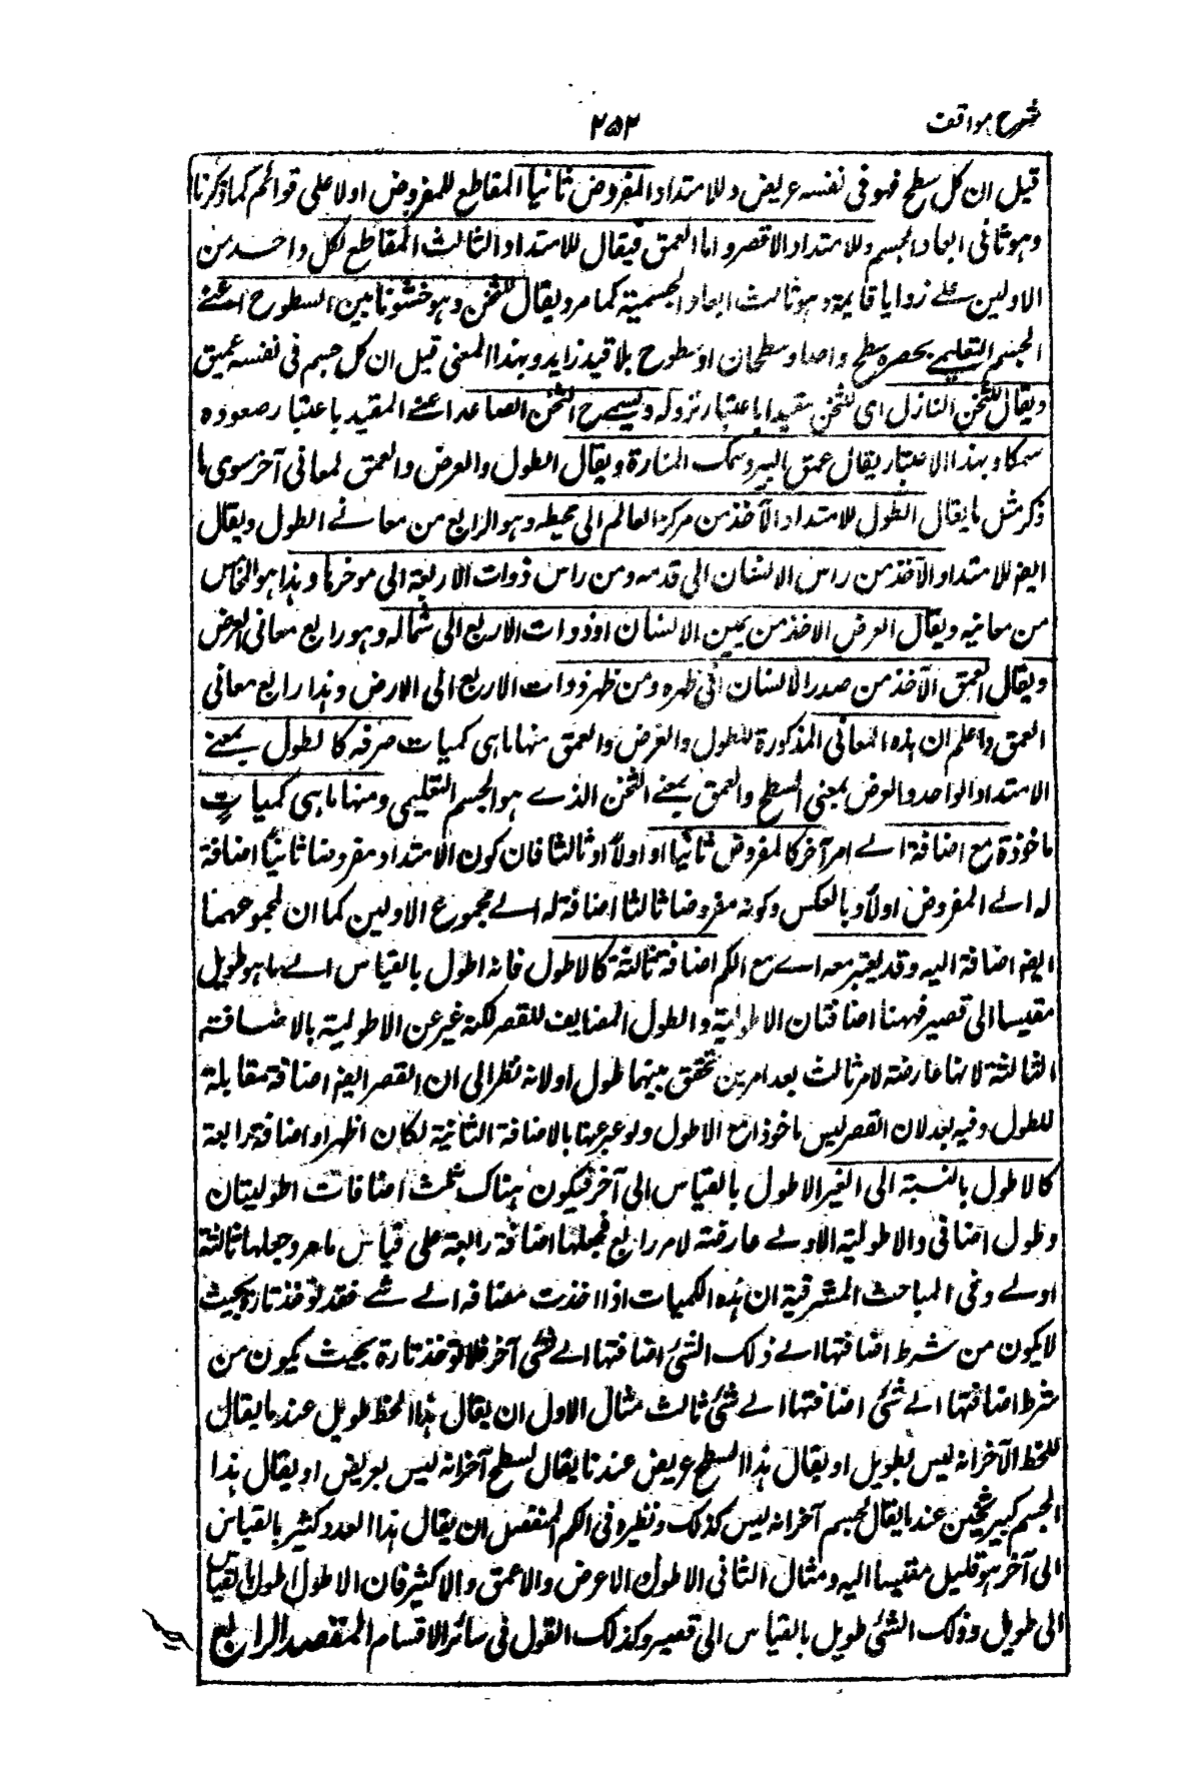 شرح مواقف
۲۵۲
قیل ان کل سطح فهو فی نفسه عریض و للامتداد المفروض ثانیا المقاطع للمفروض اولا علی قوائم کما ذکرنا
وهو ثانی ابعاد الجسم وللامتداد الاقصر واما العمق فیقال للامتداد الثالث المقاطع لکل واحد من
الاولین علے زوایا قایمة وهو ثالث ابعاد الجسمیة کما مر ویقال للثخن وهو حشو ما بین السطوح اعنے
الجسم التعلیمے یحصره سطح واحد او سطحان او سطوح بلا قید زاید وبهذا المعنی قیل ان کل جسم فی نفسه عمیق
ویقال للثخن النازل ای للثخن مقیدا باعتبار نزوله ویسمے ح الثخن الصاعد اعنے المقید باعتبار صعوده
سمکا وبهذا الاعتبار یقال عمق البیر وسمک المنارة ویقال الطول والعرض والعمق لمعانی آخر سوی ما
ذکر مثل ما یقال الطول للامتداد الآخذ من مرکز العالم الی محیطه وهو الرابع من معانے الطول ویقال
ایضا للامتداد الآخذ من راس الانسان الی قدمه ومن راس ذوات الاربعة الی موخرها وهذا هو الخامس
من معانیه ویقال العرض الاخذ من یمین الانسان او ذوات الاربع الی شماله وهو رابع معانی العرض
ویقال العمق الآخذ من صدر الانسان الی ظهره ومن ظهر ذوات الاربع الی الارض وهذا رابع معانی
العمق واعلم ان هذه المعانی المذکورة للطول والعرض والعمق منها ما هی کمیات صرفه کالطول بمعنے
الامتداد الواحد والعرض بمعنی السطح والعمق بمعنے الثخن الذے هو الجسم التعلیمی ومنها ما هی کمیات
ماخوذة مع اضافة الے امر آخر کالمفروض ثانیا او اولاً او ثالثا فان کون الامتداد مفروضا ثانیاً اضافة
له الے المفروض اولاً وبالعکس وکونه مفروضا ثالثا اضافة له الے مجموع الاولین کما ان لمجموعهما
ایضا اضافة الیه وقد یعتبر معه اے مع الکم اضافة ثالثة کالاطول فانه اطول بالقیاس الے ما هو طویل
مقیسا الی قصیر فههنا اضافتان الاطولیة والطول المضایف للقصر لکنه غیر عن الاطولیة بالاضافة
الثالثة لانها عارضة لامر ثالث بعد امرین تحقق بینهما طول اولانه نظر الی ان القصر ایضا اضافة مقابلة
للطول وفیه بعد لان القصر لیس ماخوذا مع الاطول ولو عبر عنها بالاضافة الثانیة لکان اظهر او اضافة رابعة
کالاطول بالنسبة الی الغیر الاطول بالقیاس الی آخر فیکون هناک ثلث اضافات اطولیتان
وطول اضافی والاطولیة الاولے عارضة لامر رابع فجعلها اضافة رابعة علی قیاس ما مر وجعلها ثالثة
اولے وفی المباحث المشرقیة ان هذه الکمیات اذا اخذت مضافه الے شے فقد توخذ تارة بحیث
لا یکون من شرط اضافتها الے ذلک الشئ اضافتها الے شئ آخر ثالث وقد توخذ تارة بحیث یکون من
شرط اضافتها الے شئ اضافتها الے شئ ثالث مثال الاول ان یقال هذا الخط طویل عند ما یقال
للخط الآخر انه لیس بطویل او یقال هذا السطح عریض عند ما یقال لسطح آخر انه لیس بعریض او یقال هذا
الجسم کبیر ثخین عند ما یقال لجسم آخر انه لیس کذلک ونظیره فی الکم المنفصل ان یقال هذا العدد کثیر بالقیاس
الی آخر هو قلیل مقیسا الیه ومثال الثانی الاطول الاعرض والاعمق والاکثر فان الاطول اطول بالقیاس
الی طویل وذلک الشئ طویل بالقیاس الی قصیر وکذلک القول فی سائر الاقسام المقصد الرابع